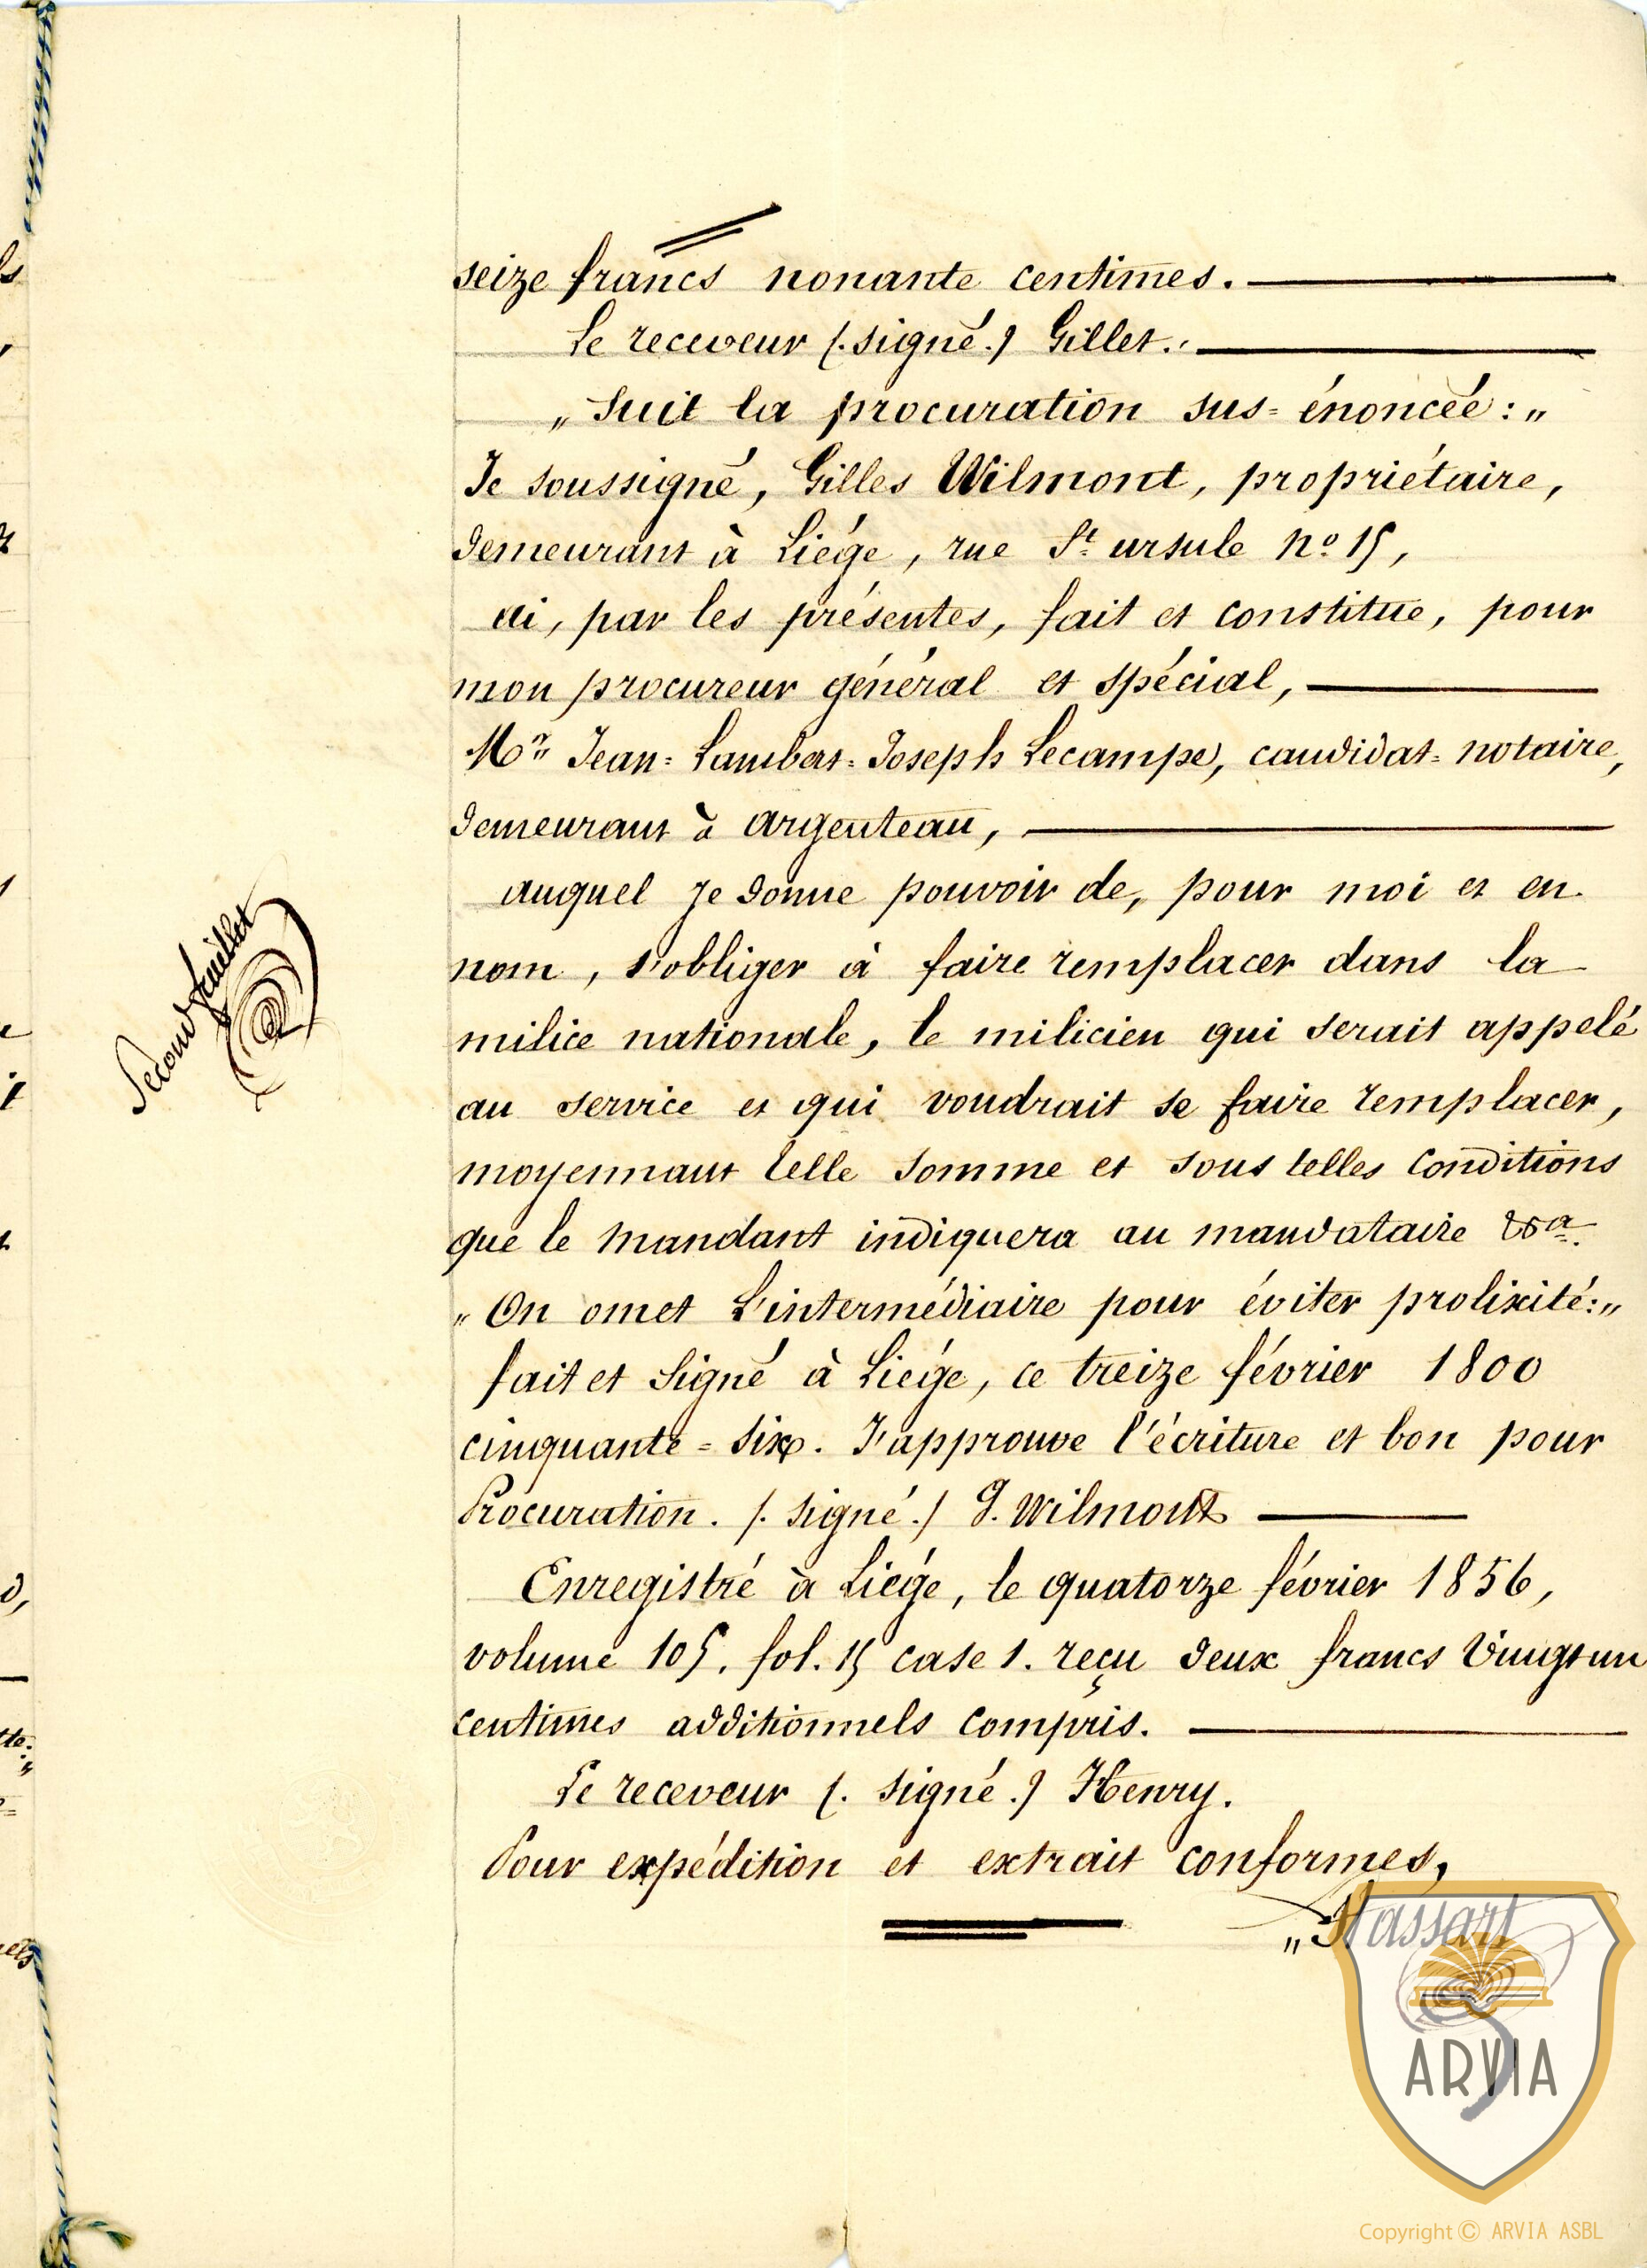 seize francs nonante centimes.
Le receveur (.signé.) Gillet.
„ Suit la procuration sus=énoncée: „
Je soussigné, Gilles Wilmont, propriétaire,
demeurant à Liége, rue St. ursule no 15,
ai, par les présentes, fait et constitue, pour
mon procureur général et spécial,
Mr. Jean=Lambert=Joseph Lecampe, candidat=notaire,
demeurant à argenteau,
auquel je donne pouvoir de, pour moi et en
nom, s'obliger à faire remplacer dans la
milice nationale, le milicien qui serait appelé
au service et qui voudrait se faire remplacer,
moyennant telle somme et sous telles conditions
que le mandant indiquera au mandataire &a.
„ On omet l'intermédiaire pour éviter prolixité: „
fait et signé à Liége, ce treize février 1800
cinquante=six. J'approuve l'écriture et bon pour
Procuration. (. signé .) G. Wilmont
Enregistré à Liége, le quatorze février 1856,
volume 105. fol. 15 case 1. reçu deux francs vingt un
centimes additionnels compris.
Le receveur (. signé .) Henry.
Pour expédition et extrait conformes,
„ Hassart
Second feuillet
ARVIA
Copyright © ARVIA ASBL